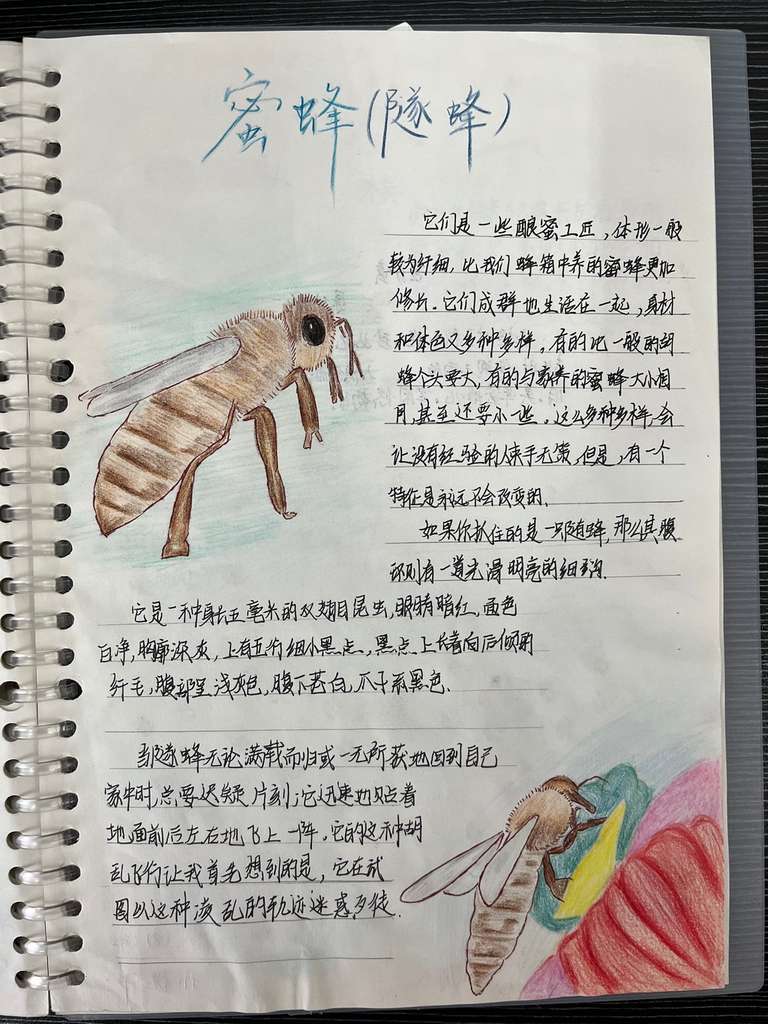 蜜蜂(隧蜂)
它们是一些酿蜜工匠,体形一般
较为纤细,比我们蜂箱中养的蜜蜂更加
修长.它们成群地生活在一起,身材
和体色又多种多样,有的比一般的胡
蜂个头要大,有的与家养的蜜蜂大小相
同,甚至还要小一些。这么多种多样,会
让没有经验的人束手无策,但是,有一个
特征是永远不会改变的.
如果你抓住的是一只隧蜂,那么其腹
部则有一道光滑明亮的细沟.
它是一种身长五毫米的双翅目昆虫,眼睛暗红,面色
白净,胸廓深灰,上有五行细小黑点,黑点上长着向后倾的
纤毛,腹部呈浅灰色,腹下苍白,爪子系黑色.
当隧蜂无论满载而归或一无所获地回到自己
家中时,总要迟疑片刻;它迅速地贴着
地面前后左右地飞上一阵。它的这种胡
乱飞行让我首先想到的是,它在试
图以这种凌乱的轨迹迷惑歹徒.